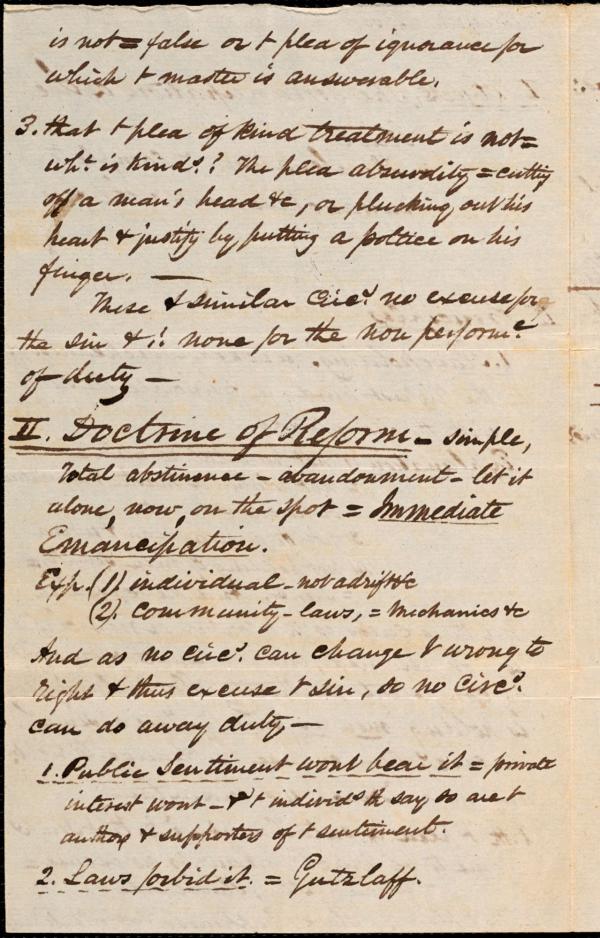 is not = false or t plea of ignorance for
which t master is answerable.
3. that t plea of kind treatment is not =
wht. is kinds.? The plea absurdity = cutting
off a man's head &c, or plucking out his
heart & justify by putting a poltice on his
finger. —
These & similar circs. no excuse for
the sin & ∴ none for the non performce.
of duty —
II. Doctrine of Reform — simple,
Total abstinence — abandonment — let it
alone, now, on the spot = Immediate
Emancipation.
Exp. (1) individual — not adrift &c
(2). Community — laws, = Mechanics &c
And as no circs. can change t wrong to
right & thus excuse t sin, so no circs.
can do away duty —
1. Public Sentiment wont bear it = private
interest wont — & t individs th say so are t
authors & supporters of t sentiment.
2. Laws forbid it. = Gutzlaff.